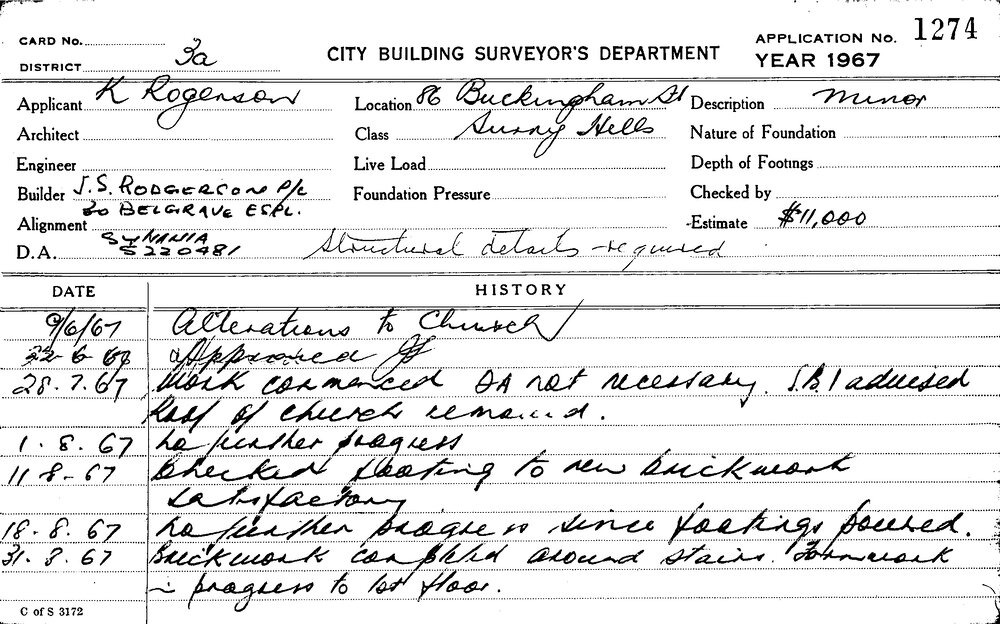 CARD No.
DISTRICT 3a
CITY BUILDING SURVEYOR'S DEPARTMENT
APPLICATION No. 1274
YEAR 1967
Applicant K Rogerson
Location 86 Buckingham St
Description Minor
Architect
Class Surry Hells
Nature of Foundation
Engineer
Live Load
Depth of Footings
Builder J.S. RODGERSON P/L
Foundation Pressure
Checked by
30 BELGRAVE ESPL.
Alignment
Estimate $11,000
SYLVANIA
D.A. 5220481
Structural details required
DATE HISTORY
9/6/67 Alterations to Church
22-6-67 Approved
28.7.67 Work commenced DA not necessary. S.B.I advised
Roof of church removed.
1.8.67 No further progress
11-8-67 Checked footing to new brickwork
satisfactory
18.8.67 No further progress since footings poured.
31.8.67 Brickwork completed around stairs. Formwork
in progress to 1st floor.
C of S 3172